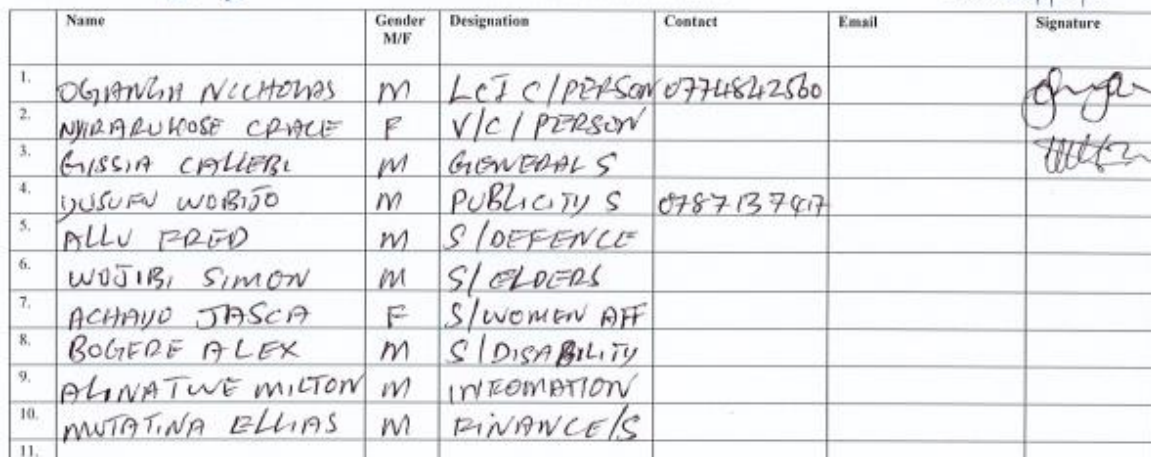 Name Gender M/F Designation Contact Email Signature
1. OGANGIA NICHOLAS M LCI C/PERSON 0774842560
2. NYIRARUKOSE GRACE F V/C/PERSON
3. GISSIA CALLEBI M GENERAL S
4. YUSUFU WOBIJO M PUBLICITY S 0787137917
5. ALLU FRED M S/DEFENCE
6. WOJIBI SIMON M S/ELDERS
7. ACHAYO JASCA F S/WOMEN AFF
8. BOGERE ALEX M S/DISABILITY
9. ALINATWE MILTON M INFOMATION
10. MUTATINA ELLIAS M FINANCE/S
11.